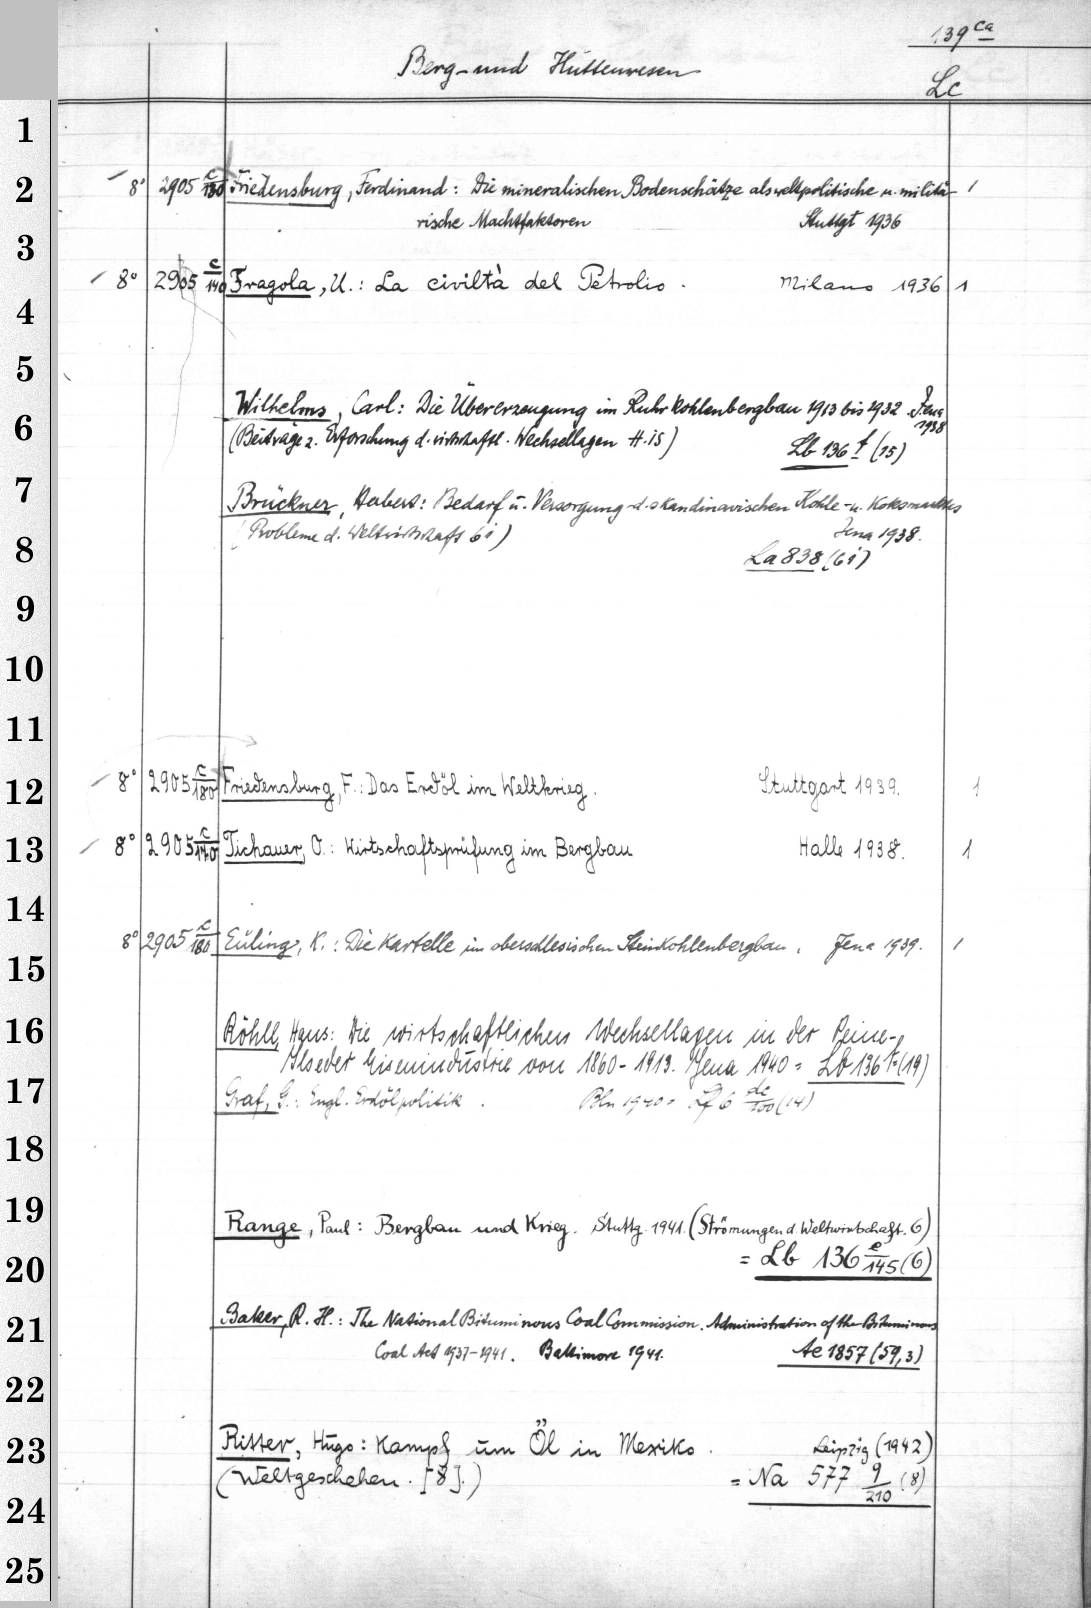 139 ca
Berg- und Hüttenwesen
Lc
1
2
3
4
5
6
7
8
9
10
11
12
13
14
15
16
17
18
19
20
21
22
23
24
25
8° 2905 c/130 Friedensburg, Ferdinand: Die mineralischen Bodenschätze als weltpolitische u. militä- 1
rische Machtfaktoren Stuttgt 1936
8° 2905 c/140 Fragola, U.: La civiltà del Petrolio. Milano 1936 1
Wilhelms, Carl: Die Übererzeugung im Ruhrkohlenbergbau 1913 bis 1932. Jena 1938
(Beiträge z. Erforschung d. wirtschaftl. Wechsellagen H. 15) Lb 136 f (15)
Brückner, Herbert: Bedarf u. Versorgung d. skandinavischen Kohle- u. Koksmarktes
(Probleme d. Weltwirtschaft 61) Jena 1938.
La 838 (61)
8° 2905 c/180 Friedensburg, F.: Das Erdöl im Weltkrieg. Stuttgart 1939. 1
8° 2905 c/170 Tichauer, O.: Wirtschaftsprüfung im Bergbau Halle 1938. 1
8° 2905 c/180 Euling, K.: Die Kartelle im oberschlesischen Steinkohlenbergbau. Jena 1939. 1
Röhll, Hans: Die wirtschaftlichen Wechsellagen in der Peine-
Ilseder Eisenindustrie von 1860-1913. Jena 1940 = Lb 136 f (19)
Graf, G.: Engl. Erdölpolitik. Bln 1940 = Lf 6 dc/100 (14)
Range, Paul: Bergbau und Krieg. Stuttg. 1941. (Strömungen d. Weltwirtschaft. 6)
= Lb 136 e/145 (6)
Baker, R. H.: The National Bituminous Coal Commission. Administration of the Bituminous
Coal Act 1937-1941. Baltimore 1941. Ae 1857 (59,3)
Ritter, Hugo: Kampf um Öl in Mexiko. Leipzig (1942)
(Weltgeschehen. [8].) = Na 577 9/210 (8)